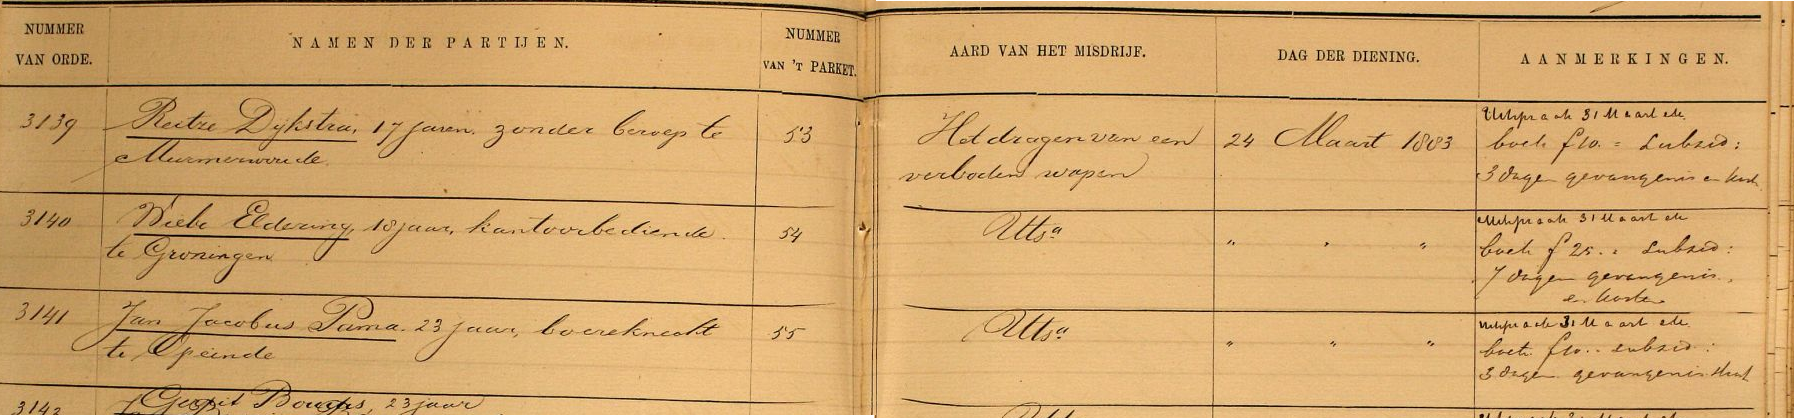 NUMMER
VAN ORDE.
NAMEN DER PARTIJEN.
NUMMER
VAN 'T PARKET.
AARD VAN HET MISDRIJF.
DAG DER DIENING.
AANMERKINGEN.
3139
Reitze Dijkstra, 17 jaren, zonder beroep te
Murmerwoude
53
Het dragen van een
verboden wapen
24 Maart 1883
Uitspraak 31 Maart
boete f 10.= Subsid:
3 dagen gevangenis en
3140
Wiebe Eldering, 18 jaar, kantoorbediende
te Groningen
54
Uts a
" " "
Uitspraak 31 Maart
boete f 25.= Subsid:
7 dagen gevangenis.
en kosten
3141
Jan Jacobus Pama. 23 jaar, boereknecht
te Opeinde
55
Uts a
" " "
Uitspraak 31 Maart
boete f 10.= subsid:
3 dagen gevangenis
3142
Gerrit 23 jaar